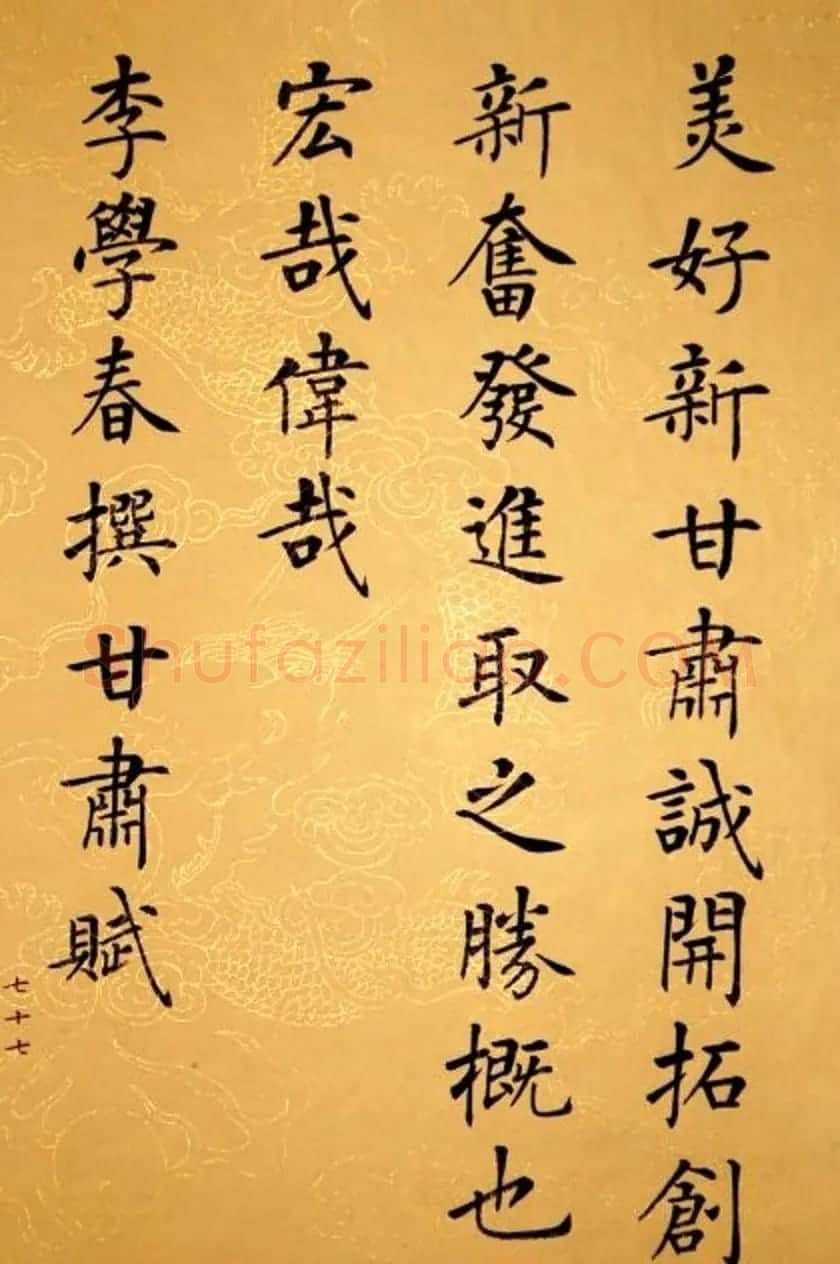 美好新甘肅誠開拓創
新奮發進取之勝概也
宏哉偉哉
李學春撰甘肅賦
七十七
Shufaziliao.com